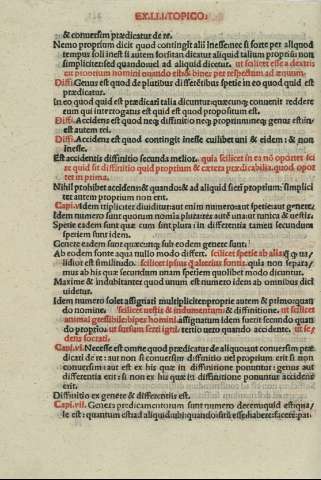 EX.LI.I.TOPICO:
& conuersim prædicatur de re.
Nemo proprium dicit quod contingit alii inesse: nec si forte per aliquod
tempus soli inest si autem sortitan dicatur aliquid talium proprium: non
simpliciter: sed quando uel ad aliquid dicetur. ut scilicet esse a dextris
est proprium homini quando & bipes per respectum ad æquum.
Diffi. Genus est quod de pluribus differētibus spetie in eo quod quid est
prædicatur.
In eo quod quid est prædicari talia dicuntur quæcunque conuenit reddere
eum qui interrogatus est quid est quod propositum est.
Diffi. Accidens est quod neque diffinitio neque proprium neque genus est: in
est autem rei.
Diffi. Accidens est quod contingit inesse cuilibet uni & eidem: & non
inesse.
Est accidentis diffinitio secunda melior. quia scilicet in ea nō oportet sci
re quid sit diffinitio quid proprium & cætera prædicabilia. quod opor
tet in prima.
Nihil prohibet accidens: & quando & ad aliquid fieri proprium: simplici
ter autem proprium non erit.
Capi.v. Idem tripliciter diuiditur: aut enim numero: aut spetie: aut genere.
Idem numero sunt quorum nomina plura: res autē una: ut tunica & uestis.
Spetie eadem sunt quæ cum sint plura: in differentia tamen secundum
speriem sunt idem.
Genere eadem sunt quæcunq; sub eodem genere sunt.
Ab eodem fonte aqua nullo modo differt. scilicet spetie ab alia: q̄ q ua/
lidior est similitudo. scilicet ipsius q̄ alterius fontis. quia non separa/
mus ab his quæ secundum unam speriem quolibet modo dicuntur.
Maxime & indubitanter quod unum est numero idem ab omnibus dici
uidetur.
Idem numero solet assignari multipliciter: proprie autem & primo: quan
do nomine. scilicet uestis & indumentum: & diffinitione. ut scilicet
animal gressibile bipes homini assignatum idem fuerit secundo quan
do proprio. ut sursum ferri igni: tertio uero quando accidente. ut se/
dens socrati.
Capi.vi. Necesse est omne quod prædicatur de aliquo: aut conuersim præ
dicari de re: aut non si conuersim diffinitio uel proprium erit si non
conuersim: aut est ex his quæ in diffinitione ponuntur: genus aut
differentia erit: si non ex his quæ in diffinitione ponuntur accidens
erit.
Diffinitio ex genere & differentiis est.
Capi.vii. Genera prædicamentorum sunt numero decem: quid est: qua/
le est: quantum est: ad aliquid: ubi: quando: situ esse: habere: facere: pat.